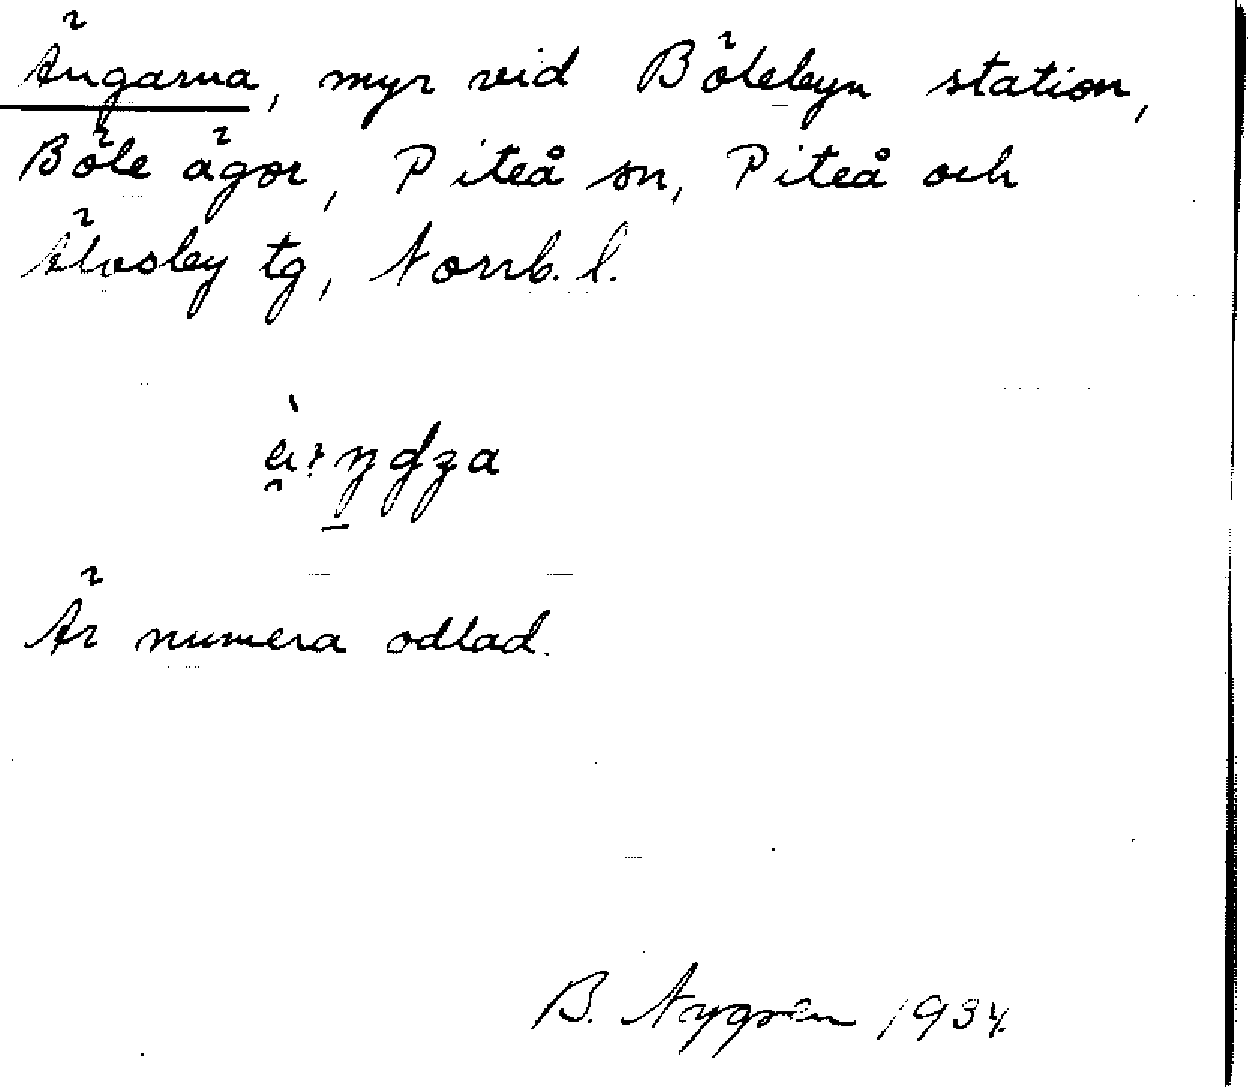 Ängarna, myr vid Bölebyn station,
Böle ägor, Piteå sn, Piteå och
Älvsby tg, Norrb. l.
Är numera odlad.
B. Nygren 1934.